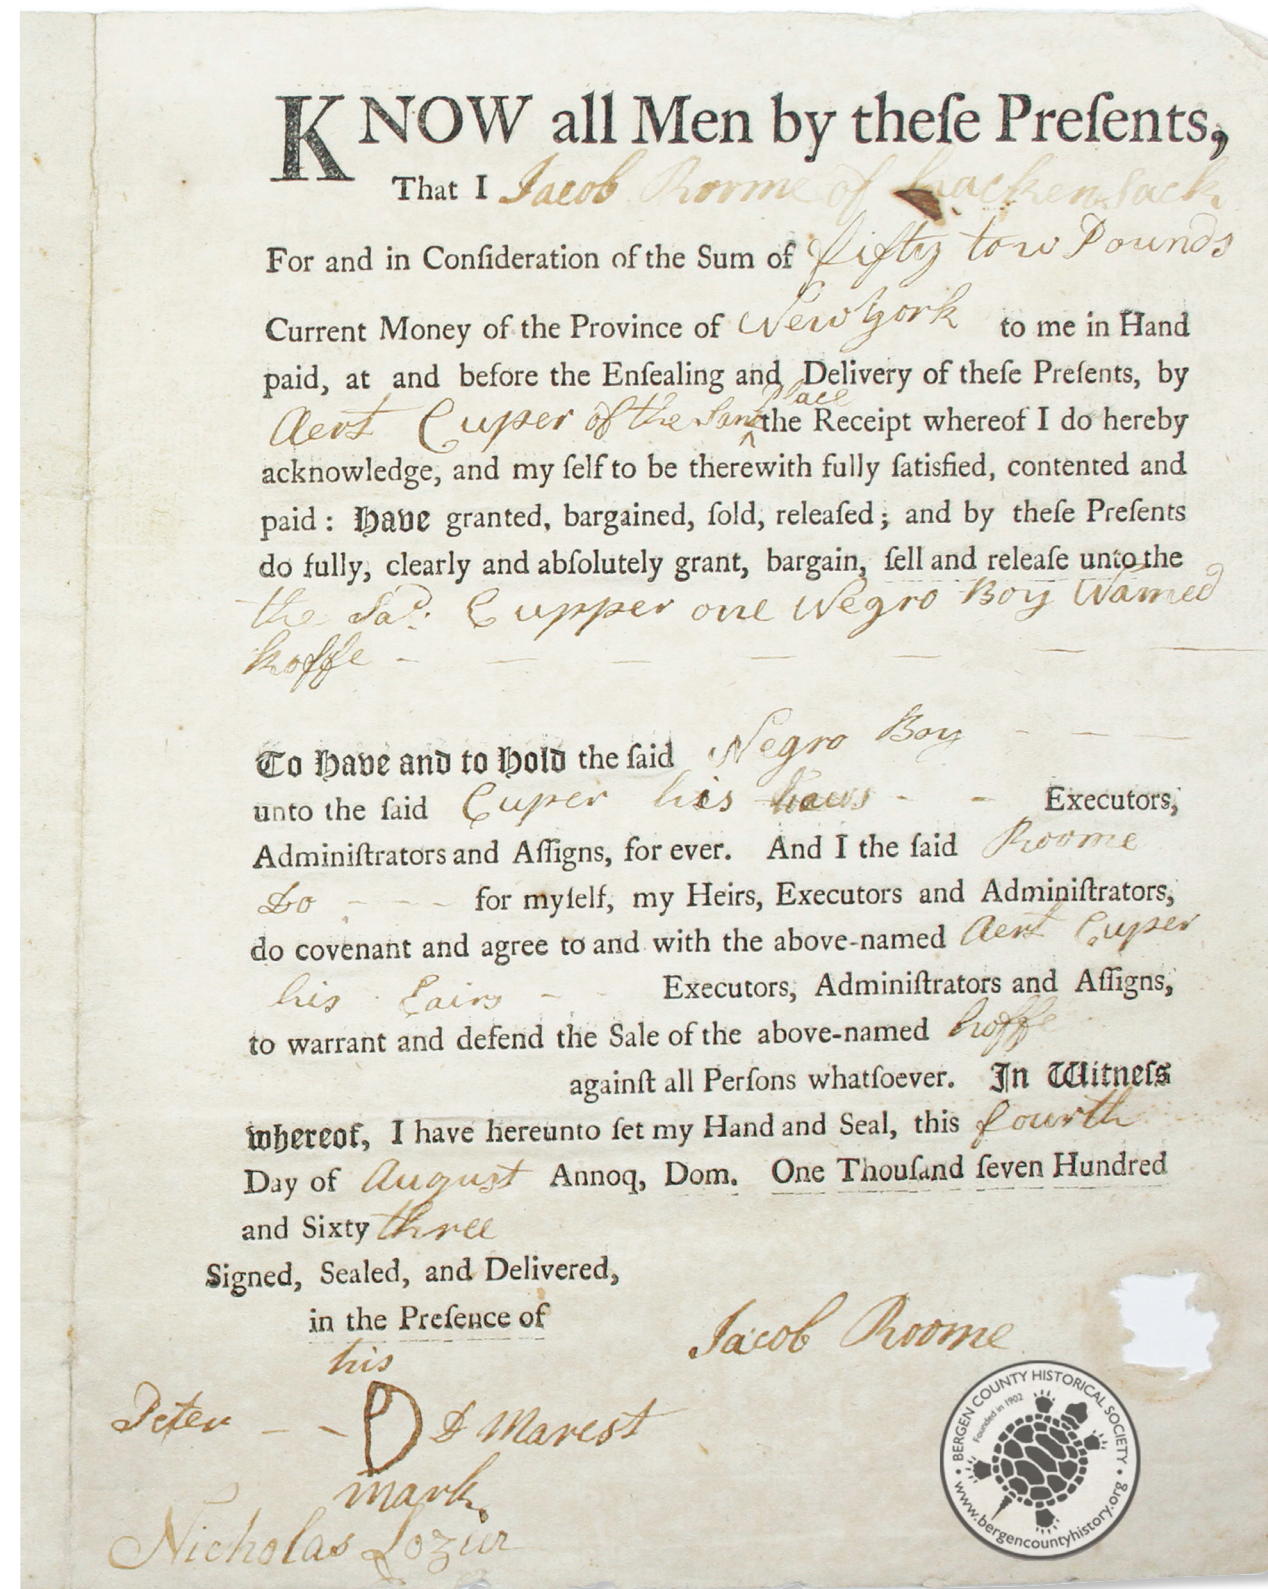 KNOW all Men by theſe Preſents,
That I Jacob Roome of hackensack
For and in Conſideration of the Sum of fifty tow Pounds
Current Money of the Province of New York to me in Hand
paid, at and before the Enſealing and Delivery of theſe Preſents, by
Place
Aert Cuper of the Same ^ the Receipt whereof I do hereby
acknowledge, and my ſelf to be therewith fully ſatisfied, contented and
paid : Have granted, bargained, ſold, releaſed ; and by theſe Preſents
do fully, clearly and abſolutely grant, bargain, ſell and releaſe unto the
the Sad. Cupper one Negro Boy Named
koffe - - - - - - -
To Have and to Hold the ſaid Negro Boy - - -
unto the ſaid Cuper his - - Executors,
Adminiſtrators and Aſſigns, for ever. And I the ſaid Roome
Do - - - for myſelf, my Heirs, Executors and Adminiſtrators,
do covenant and agree to and with the above-named Aert Cuper
his - - Executors, Adminiſtrators and Aſſigns,
to warrant and defend the Sale of the above-named koffe
againſt all Perſons whatſoever. In Witneſs
whereof, I have hereunto ſet my Hand and Seal, this fourth
Day of August Annoq, Dom. One Thouſand ſeven Hundred
and Sixty three
Signed, Sealed, and Delivered,
in the Preſence of
Jacob Roome
his
Peter - - D D Marest
mark
Nicholas Lozier
BERGEN COUNTY HISTORICAL SOCIETY
Founded in 1902
www.bergencountyhistory.org